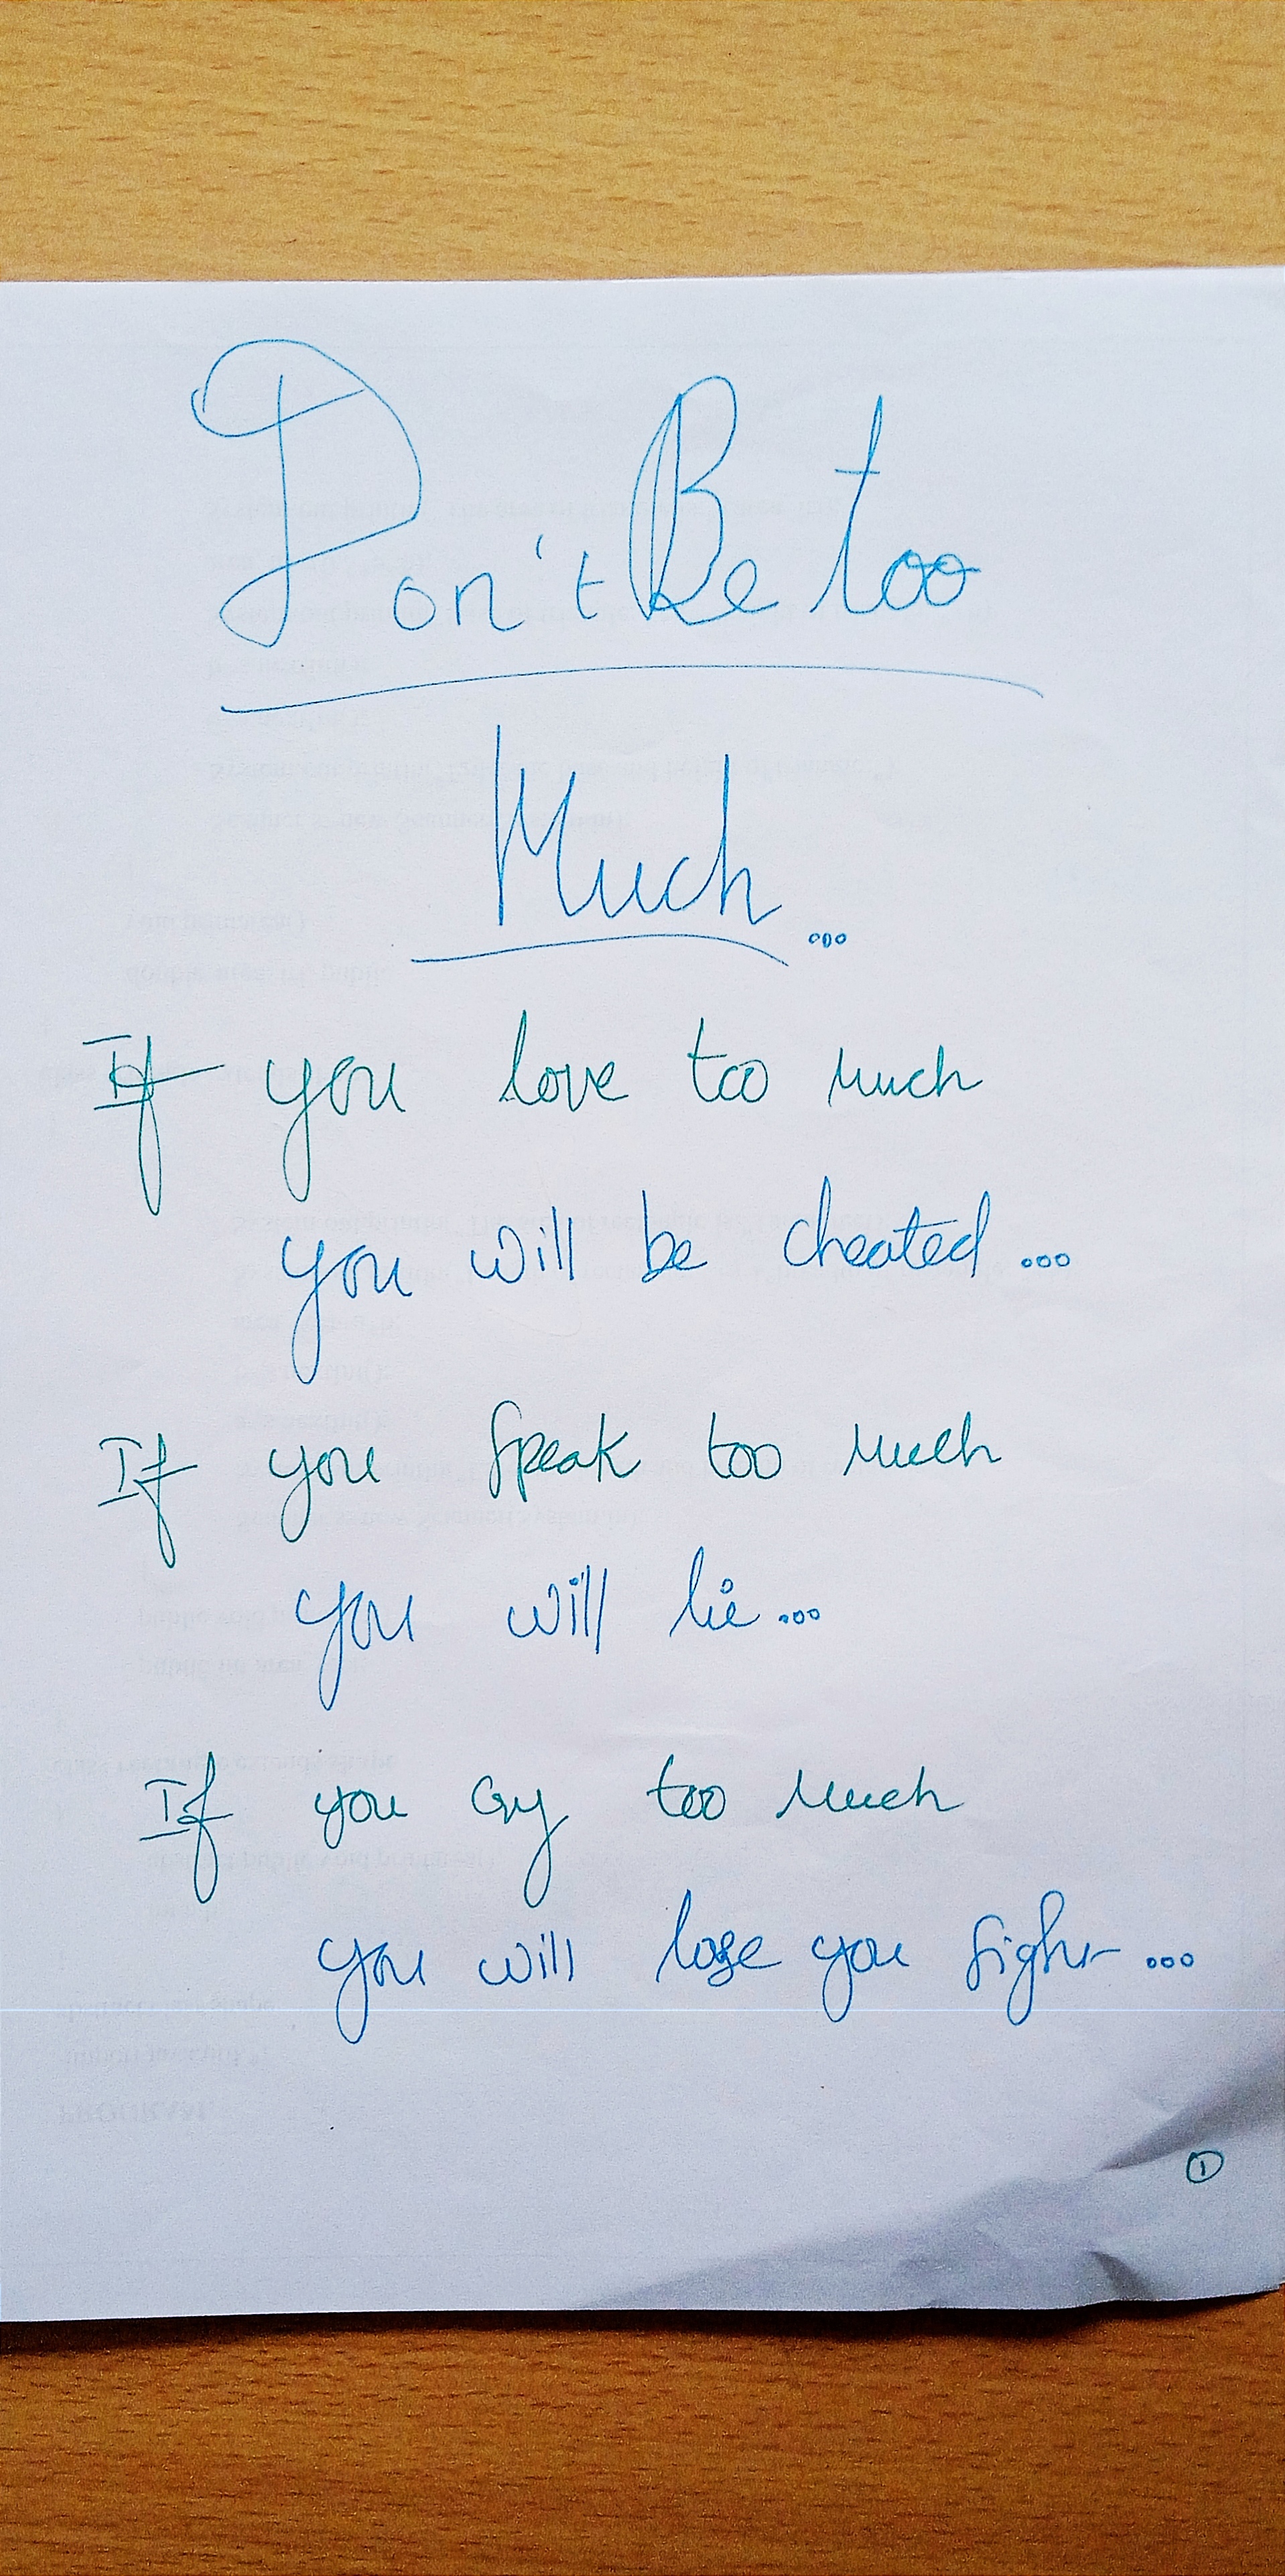 Don't Be too
Much...
If you love too much
you will be cheated...
If you speak too much
you will lie...
If you cry too much
you will lose you sight...
1